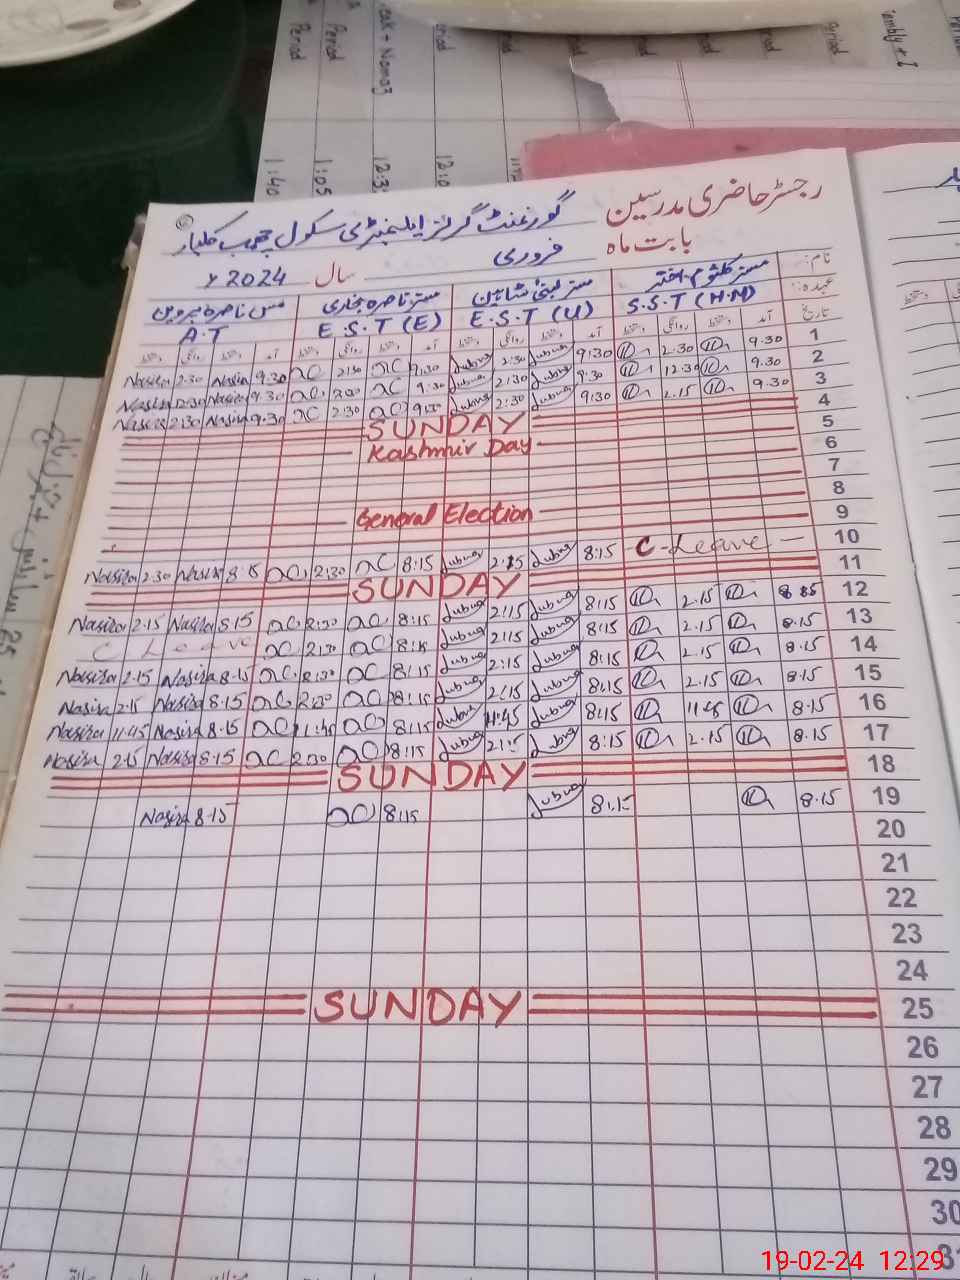 Period
Period
Break + Namaz
Period
Period
1:40
1:05
12:3
12:0
رجسٹر حاضری مدرسین گورنمنٹ گرلز ایلیمنٹری سکول چھمب کلیار
بابت ماہ فروری سال 2024ء
نام: مسز کلثوم اختر مسز لبنیٰ شاہین مسز ناصرہ بخاری مس ناصرہ پروین
عہدہ: S.S.T (H.M) E.S.T (U) E.S.T (E) A.T
تاریخ آمد دستخط روانگی دستخط آمد دستخط روانگی دستخط آمد دستخط روانگی دستخط آمد دستخط روانگی دستخط
Nasira 2:30 Nasira 9:30 2:30 9:30 Lubna 2:30 Lubna 9:30 2.30 9.30 1
Nasira 12:30 Nasira 9.30 9:30 Lubna 2:30 Lubna 12.30 9.30 2
Nasira 2:30 Nasira 9.30 2:30 Lubna 2:30 Lubna 9:30 2.15 9.30 3
SUNDAY 4
Kashmir Day 5
6
7
General Election 8
9
Nasira 2:30 Nasira 8:15 2:30 8:15 Lubna 2:15 Lubna 8:15 C-Leave 10
SUNDAY 11
Nasira 2.15 Nasira 8.15 2:30 8:15 Lubna 2:15 Lubna 8:15 2.15 12
C Leave 2:30 8:15 Lubna 2:15 Lubna 8:15 2.15 8.15 13
Nasira 2.15 Nasira 8.15 2:30 8:15 Lubna 2:15 Lubna 8:15 2.15 8.15 14
Nasira 2.15 Nasira 8.15 2:30 8:15 Lubna 2:15 Lubna 8:15 2.15 8.15 15
Nasira 11:45 Nasira 8.15 11:45 8:15 Lubna 11:45 Lubna 8:15 11.45 8.15 16
Nasira 2.15 Nasira 8.15 2:30 8:15 Lubna 2:15 Lubna 8:15 2.15 8.15 17
SUNDAY 18
Nasira 8.15 8:15 Lubna 8:15 8.15 19
20
21
22
23
24
SUNDAY 25
26
27
28
29
30
19-02-24 12:29